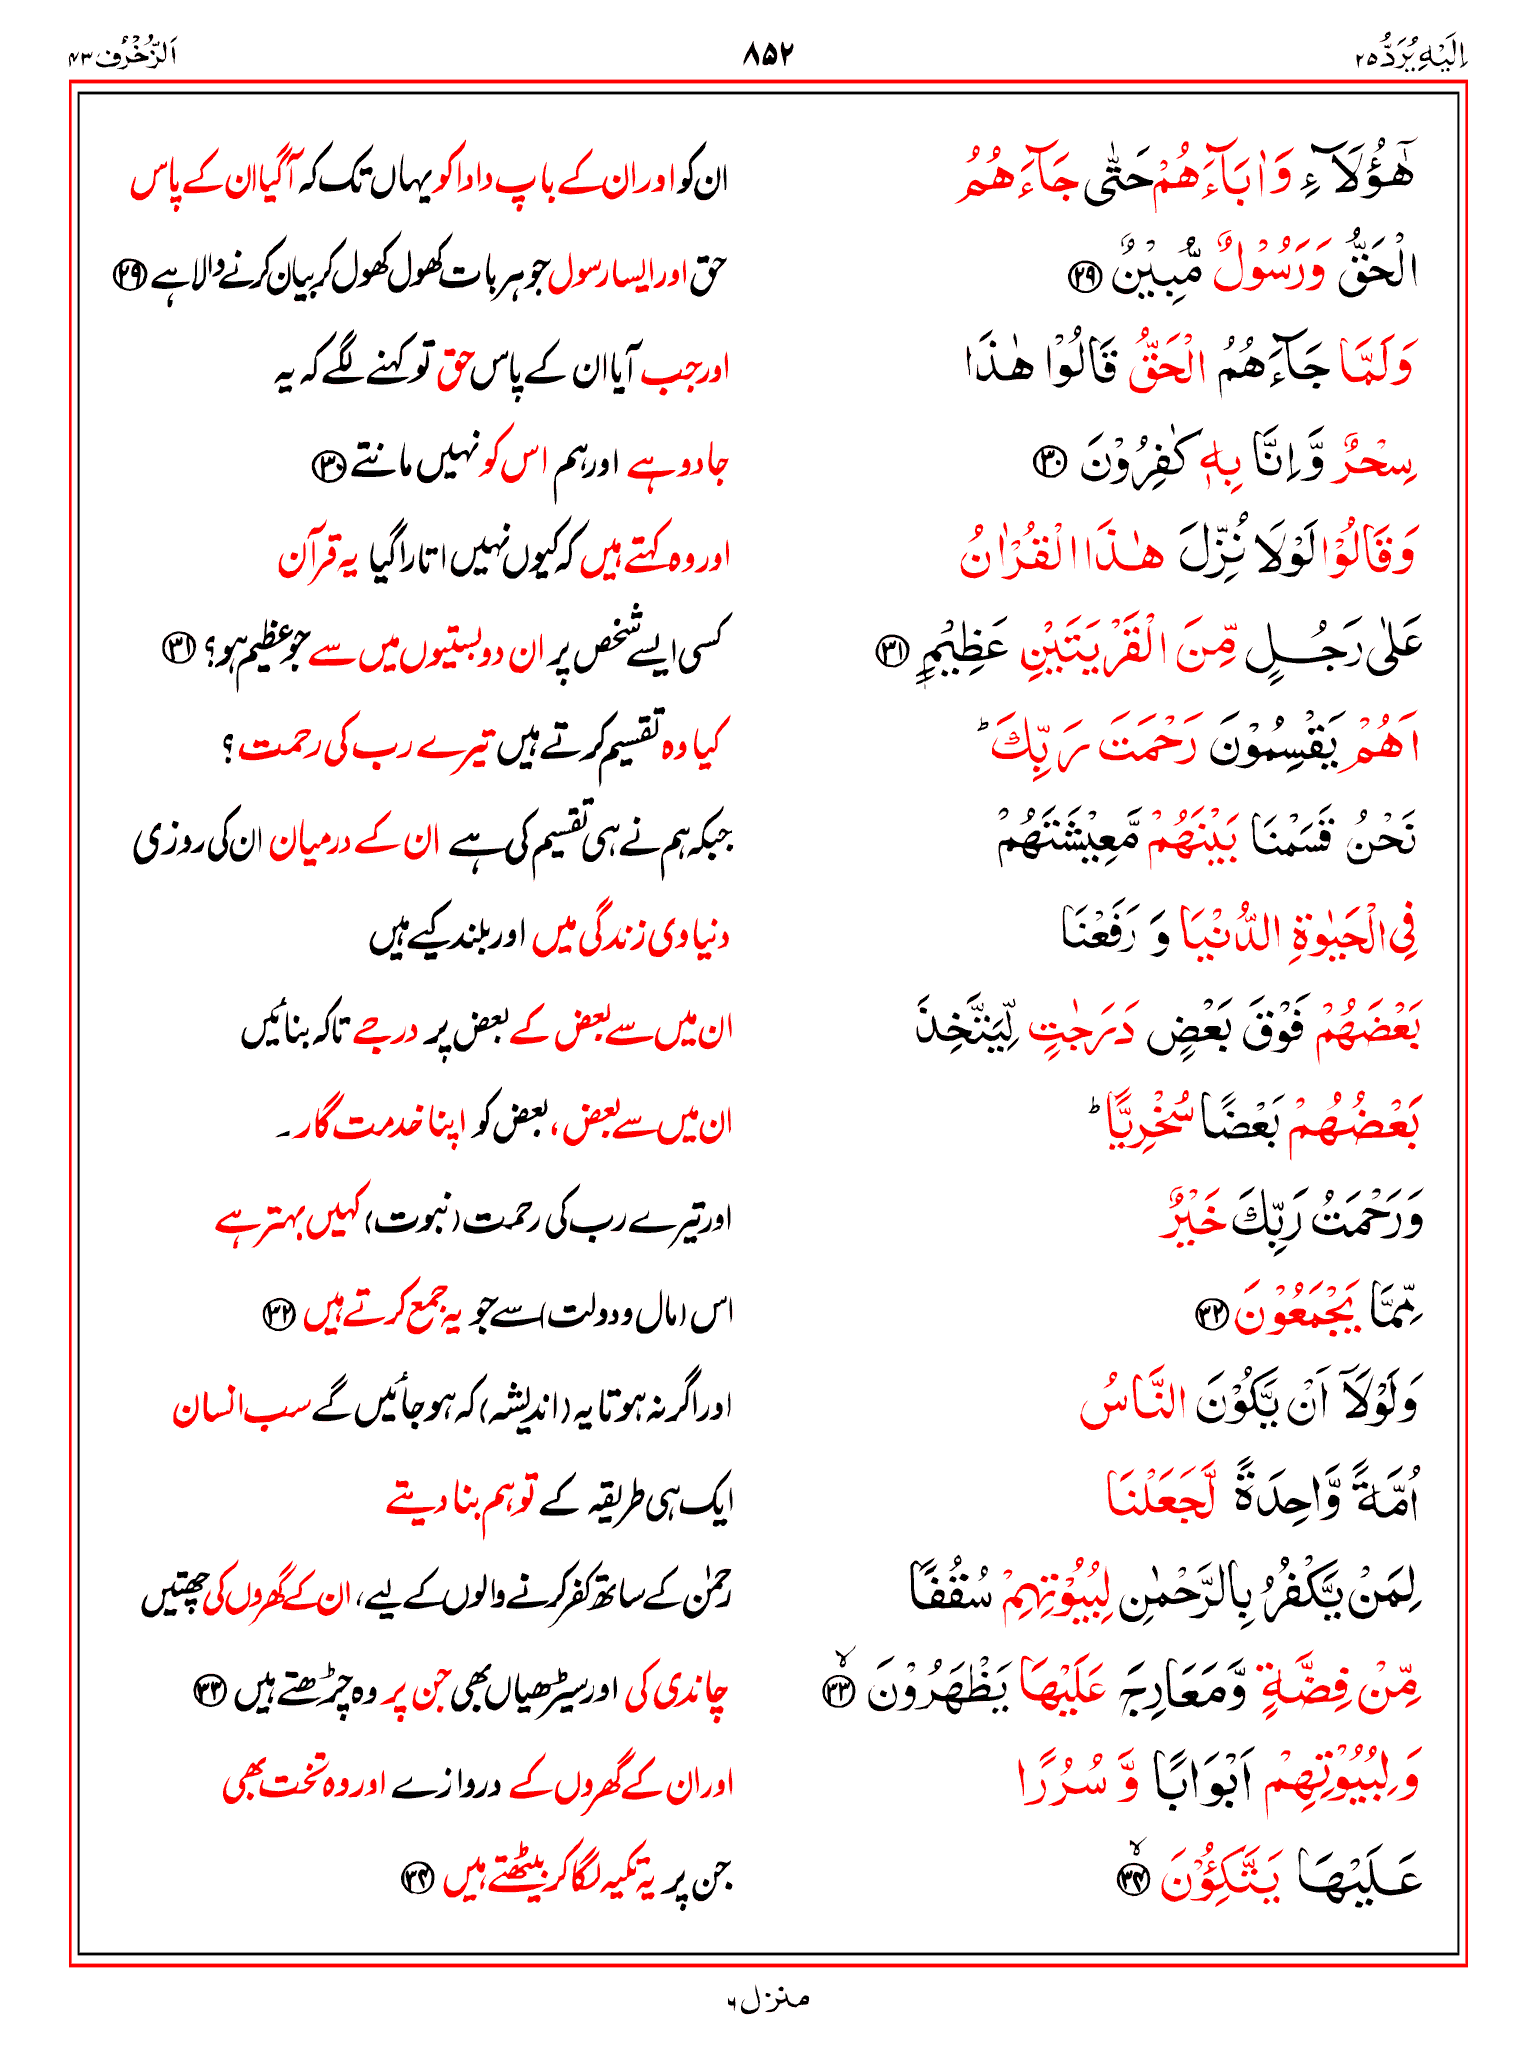 اِلَيْهِ يُرَدُّ ٢٥
٨٥٢
اَلزُّخْرُف ٤٣
هٰٓؤُلَآءِ وَاٰبَآءَهُمْ حَتّٰى جَآءَهُمُ
ان کو اور ان کے باپ دادا کو یہاں تک کہ آگیا ان کے پاس
الْحَقُّ وَرَسُوْلٌ مُّبِيْنٌ ﴿٢٩﴾
حق اور ایسا رسول جو ہر بات کھول کھول کر بیان کرنے والا ہے ﴿٢٩﴾
وَلَمَّا جَآءَهُمُ الْحَقُّ قَالُوْا هٰذَا
اور جب آیا ان کے پاس حق تو کہنے لگے کہ یہ
سِحْرٌ وَّاِنَّا بِهٖ كٰفِرُوْنَ ﴿٣٠﴾
جادو ہے اور ہم اس کو نہیں مانتے ﴿٣٠﴾
وَقَالُوْا لَوْلَا نُزِّلَ هٰذَا الْقُرْاٰنُ
اور وہ کہتے ہیں کہ کیوں نہیں اتارا گیا یہ قرآن
عَلٰى رَجُلٍ مِّنَ الْقَرْيَتَيْنِ عَظِيْمٍ ﴿٣١﴾
کسی ایسے شخص پر ان دو بستیوں میں سے جو عظیم ہو؟ ﴿٣١﴾
اَهُمْ يَقْسِمُوْنَ رَحْمَتَ رَبِّكَ ؕ
کیا وہ تقسیم کرتے ہیں تیرے رب کی رحمت؟
نَحْنُ قَسَمْنَا بَيْنَهُمْ مَّعِيْشَتَهُمْ
جبکہ ہم نے ہی تقسیم کی ہے ان کے درمیان ان کی روزی
فِى الْحَيٰوةِ الدُّنْيَا وَ رَفَعْنَا
دنیاوی زندگی میں اور بلند کیے ہیں
بَعْضَهُمْ فَوْقَ بَعْضٍ دَرَجٰتٍ لِّيَتَّخِذَ
ان میں سے بعض کے بعض پر درجے تاکہ بنائیں
بَعْضُهُمْ بَعْضًا سُخْرِيًّا ؕ
ان میں سے بعض، بعض کو اپنا خدمت گار۔
وَرَحْمَتُ رَبِّكَ خَيْرٌ
اور تیرے رب کی رحمت (نبوت) کہیں بہتر ہے
مِّمَّا يَجْمَعُوْنَ ﴿٣٢﴾
اس (مال و دولت) سے جو یہ جمع کرتے ہیں ﴿٣٢﴾
وَلَوْلَآ اَنْ يَّكُوْنَ النَّاسُ
اور اگر نہ ہوتا یہ (اندیشہ) کہ ہو جائیں گے سب انسان
اُمَّةً وَّاحِدَةً لَّجَعَلْنَا
ایک ہی طریقہ کے تو ہم بنا دیتے
لِمَنْ يَّكْفُرُ بِالرَّحْمٰنِ لِبُيُوْتِهِمْ سُقُفًا
رحمٰن کے ساتھ کفر کرنے والوں کے لیے، ان کے گھروں کی چھتیں
مِّنْ فِضَّةٍ وَّمَعَارِجَ عَلَيْهَا يَظْهَرُوْنَ ﴿٣٣﴾ ۙ
چاندی کی اور سیڑھیاں بھی جن پر وہ چڑھتے ہیں ﴿٣٣﴾
وَلِبُيُوْتِهِمْ اَبْوَابًا وَّ سُرُرًا
اور ان کے گھروں کے دروازے اور وہ تخت بھی
عَلَيْهَا يَتَّكِـُٔوْنَ ﴿٣٤﴾ ۙ
جن پر یہ تکیہ لگا کر بیٹھتے ہیں ﴿٣٤﴾
منزل ٦